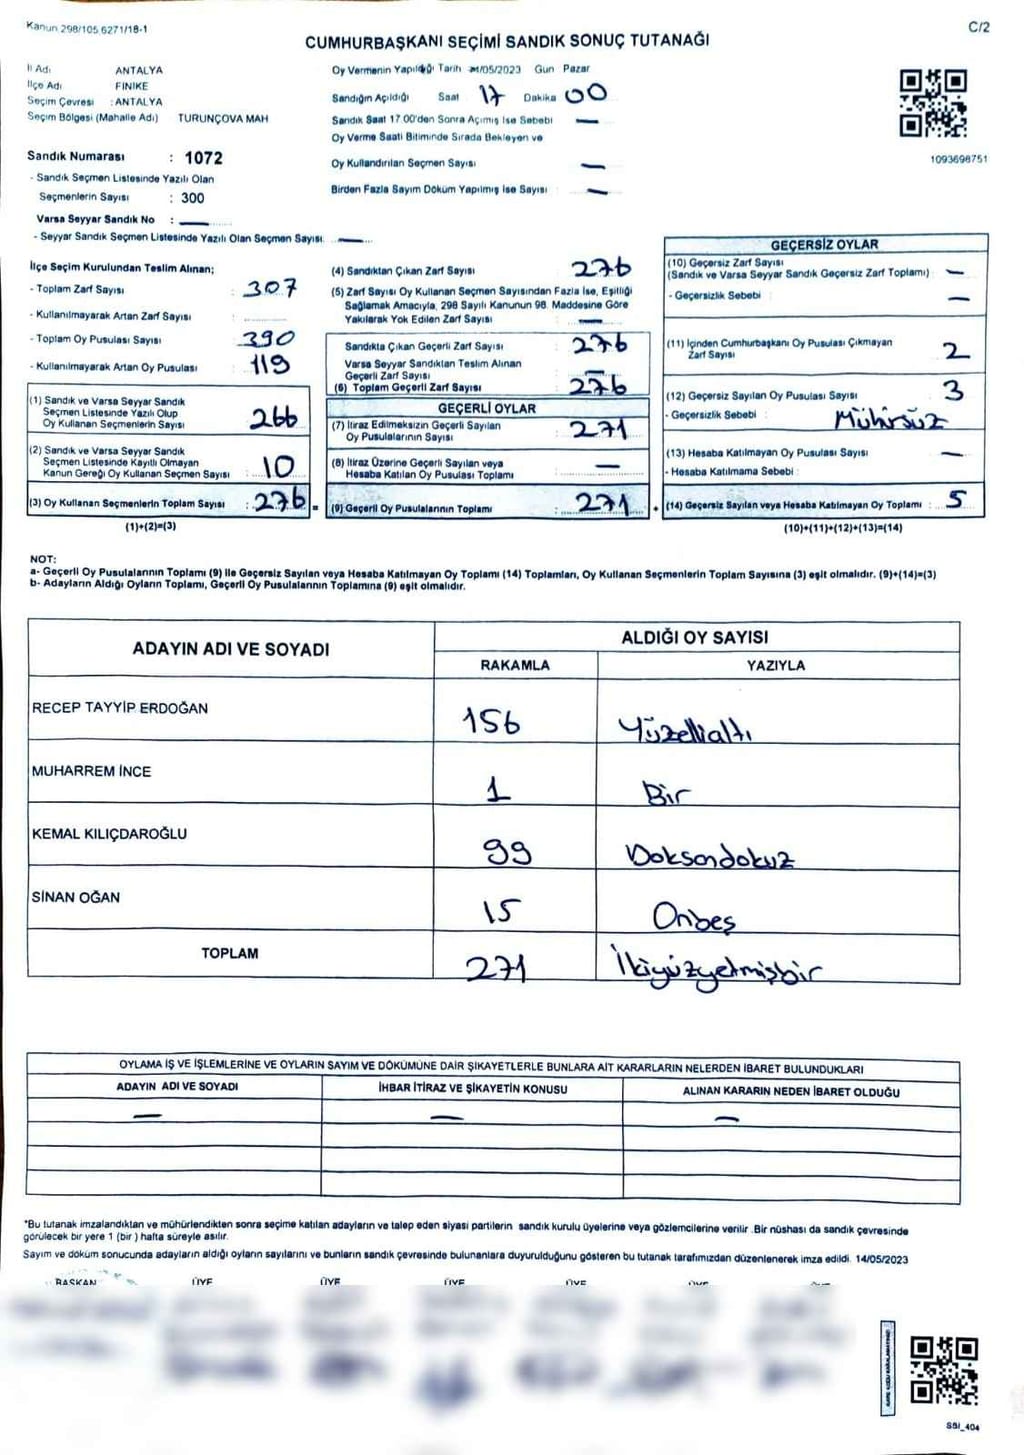 Kanun 298/105,6271/18-1
C/2
CUMHURBAŞKANI SEÇİMİ SANDIK SONUÇ TUTANAĞI
İl Adı ANTALYA
İlçe Adı FİNİKE
Seçim Çevresi : ANTALYA
Seçim Bölgesi (Mahalle Adı) TURUNÇOVA MAH
Sandık Numarası : 1072
- Sandık Seçmen Listesinde Yazılı Olan
Seçmenlerin Sayısı : 300
Varsa Seyyar Sandık No : —
- Seyyar Sandık Seçmen Listesinde Yazılı Olan Seçmen Sayısı: —
Oy Vermenin Yapıldığı Tarih /05/2023 Gun Pazar
Sandığın Açıldığı Saat 17 Dakika 00
Sandık Saat 17.00'den Sonra Açımış İse Sebebi —
Oy Verme Saati Bitiminde Sırada Bekleyen ve
Oy Kullandırılan Seçmen Sayısı —
Birden Fazla Sayım Döküm Yapılmış İse Sayısı —
1093698751
İlçe Seçim Kurulundan Teslim Alınan;
- Toplam Zarf Sayısı : 307
- Kullanılmayarak Artan Zarf Sayısı :
- Toplam Oy Pusulası Sayısı : 390
- Kullanılmayarak Artan Oy Pusulası : 119
(1) Sandık ve Varsa Seyyar Sandık
Seçmen Listesinde Yazılı Olup
Oy Kullanan Seçmenlerin Sayısı : 266
(2) Sandık ve Varsa Seyyar Sandık
Seçmen Listesinde Kayıtlı Olmayan
Kanun Gereği Oy Kullanan Seçmen Sayısı : 10
(3) Oy Kullanan Seçmenlerin Toplam Sayısı : 276 =
(1)+(2)=(3)
(4) Sandıktan Çıkan Zarf Sayısı : 276
(5) Zarf Sayısı Oy Kullanan Seçmen Sayısından Fazla İse, Eşitliği
Sağlamak Amacıyla, 298 Sayılı Kanunun 98. Maddesine Göre
Yakılarak Yok Edilen Zarf Sayısı : —
Sandıkta Çıkan Geçerli Zarf Sayısı : 276
Varsa Seyyar Sandıktan Teslim Alınan
Geçerli Zarf Sayısı : —
(6) Toplam Geçerli Zarf Sayısı : 276
GEÇERLİ OYLAR
(7) İtiraz Edilmeksizin Geçerli Sayılan
Oy Pusulalarının Sayısı : 271
(8) İtiraz Üzerine Geçerli Sayılan veya
Hesaba Katılan Oy Pusulası Toplamı : —
(9) Geçerli Oy Pusulalarının Toplamı : 271 +
GEÇERSİZ OYLAR
(10) Geçersiz Zarf Sayısı
(Sandık ve Varsa Seyyar Sandık Geçersiz Zarf Toplamı) : —
- Geçersizlik Sebebi : —
(11) İçinden Cumhurbaşkanı Oy Pusulası Çıkmayan
Zarf Sayısı : 2
(12) Geçersiz Sayılan Oy Pusulası Sayısı : 3
- Geçersizlik Sebebi : Mühürsüz
(13) Hesaba Katılmayan Oy Pusulası Sayısı : —
- Hesaba Katılmama Sebebi :
(14) Geçersiz Sayılan veya Hesaba Katılmayan Oy Toplamı : 5
(10)+(11)+(12)+(13)=(14)
NOT:
a- Geçerli Oy Pusulalarının Toplamı (9) ile Geçersiz Sayılan veya Hesaba Katılmayan Oy Toplamı (14) Toplamları, Oy Kullanan Seçmenlerin Toplam Sayısına (3) eşit olmalıdır. (9)+(14)=(3)
b- Adayların Aldığı Oyların Toplamı, Geçerli Oy Pusulalarının Toplamına (9) eşit olmalıdır.
ADAYIN ADI VE SOYADI
ALDIĞI OY SAYISI
RAKAMLA YAZIYLA
RECEP TAYYİP ERDOĞAN 156 Yüzellialtı
MUHARREM İNCE 1 Bir
KEMAL KILIÇDAROĞLU 99 Doksandokuz
SİNAN OĞAN 15 Onbeş
TOPLAM 271 İkiyüzyetmişbir
OYLAMA İŞ VE İŞLEMLERİNE VE OYLARIN SAYIM VE DÖKÜMÜNE DAİR ŞİKAYETLERLE BUNLARA AİT KARARLARIN NELERDEN İBARET BULUNDUKLARI
ADAYIN ADI VE SOYADI İHBAR İTİRAZ VE ŞİKAYETİN KONUSU ALINAN KARARIN NEDEN İBARET OLDUĞU
— — —
*Bu tutanak imzalandıktan ve mühürlendikten sonra seçime katılan adayların ve talep eden siyasi partilerin sandık kurulu üyelerine veya gözlemcilerine verilir .Bir nüshası da sandık çevresinde
görülecek bir yere 1 (bir ) hafta süreyle asılır.
Sayım ve döküm sonucunda adayların aldığı oyların sayılarını ve bunların sandık çevresinde bulunanlara duyurulduğunu gösteren bu tutanak tarafımızdan düzenlenerek imza edildi. 14/05/2023
BAŞKAN ÜYE ÜYE ÜYE ÜYE ÜYE ÜYE
SSI_404